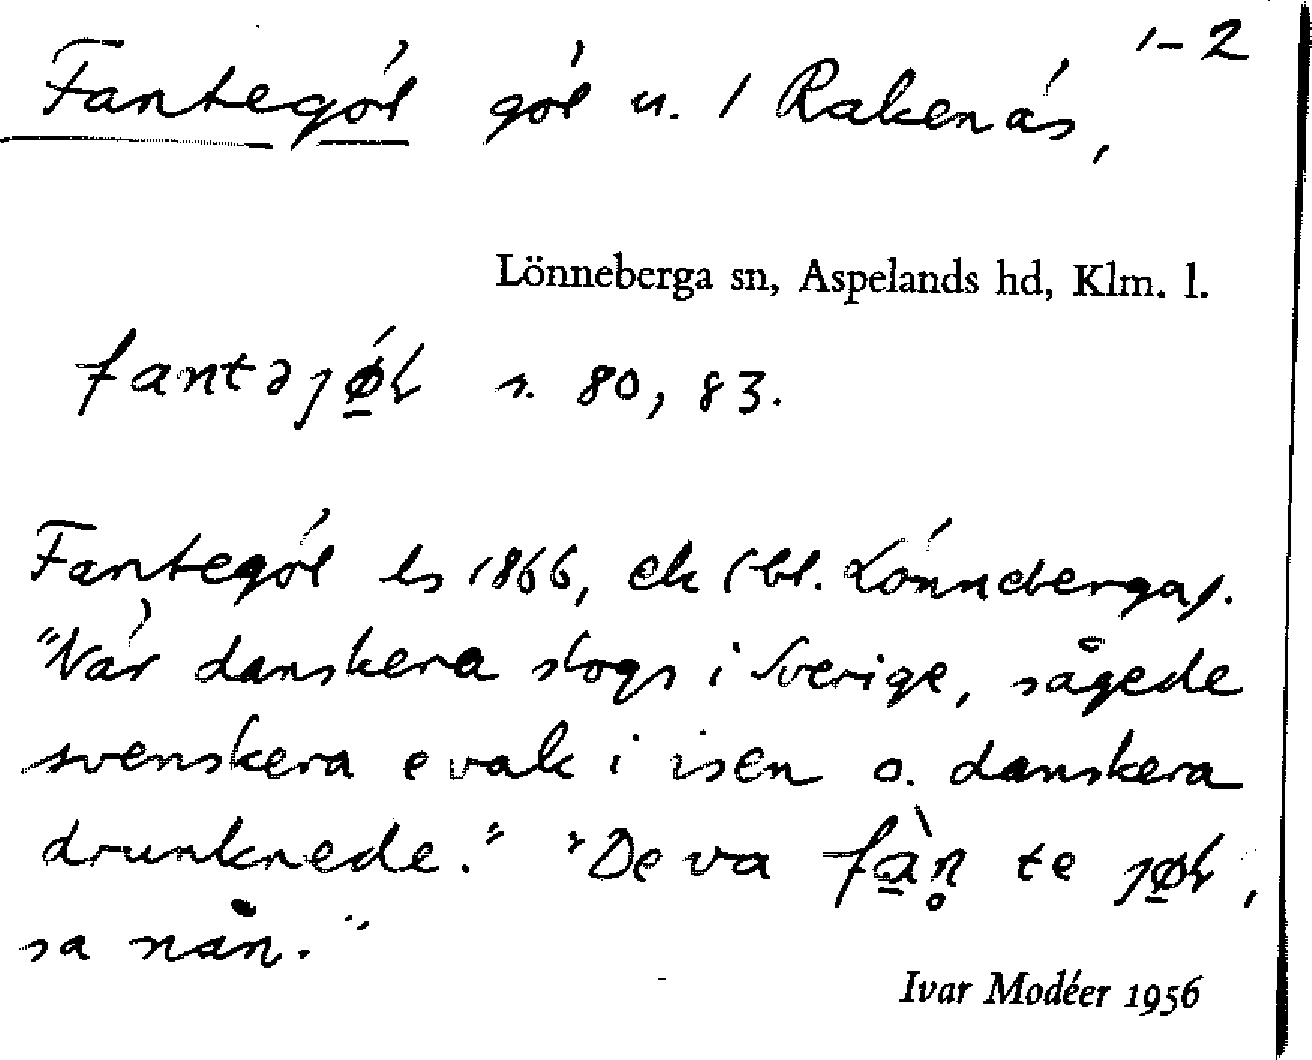 1-2
Fantegöl göl u. / Rakenäs,
Lönneberga sn, Aspelands hd, Klm. l.
fantəȷø̱ɫ s. 80, 83.
Fantegöl ls 1866, ek (bl. Lönneberga).
"När danskera slogs i Sverige, sågede
svenskera e vak i isen o. danskera
drunknede." "De va fà̱n̥ te ȷø̱ɫ,
sa nån."
Ivar Modéer 1956